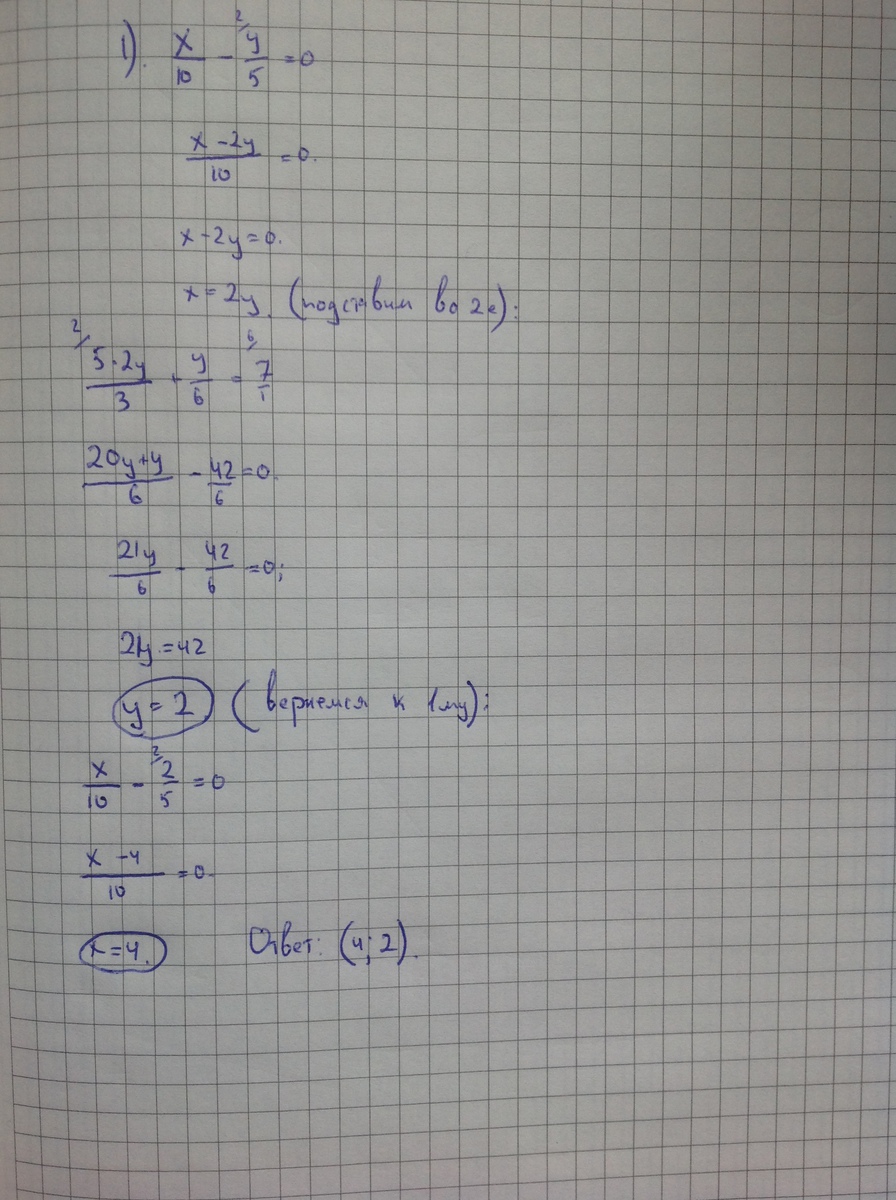 1). x/10 - ²/y/5 = 0
x - 2y/10 = 0.
x - 2y = 0.
x = 2y. (подствим во 2е):
²/5·2y/3 + y/6 = ⁶/7/1
20y+y/6 - 42/6 = 0.
21y/6 - 42/6 = 0;
21y = 42
y = 2 (вернемся к 1му):
x/10 - ²/2/5 = 0
x - 4/10 = 0.
x = 4. Ответ: (4; 2).